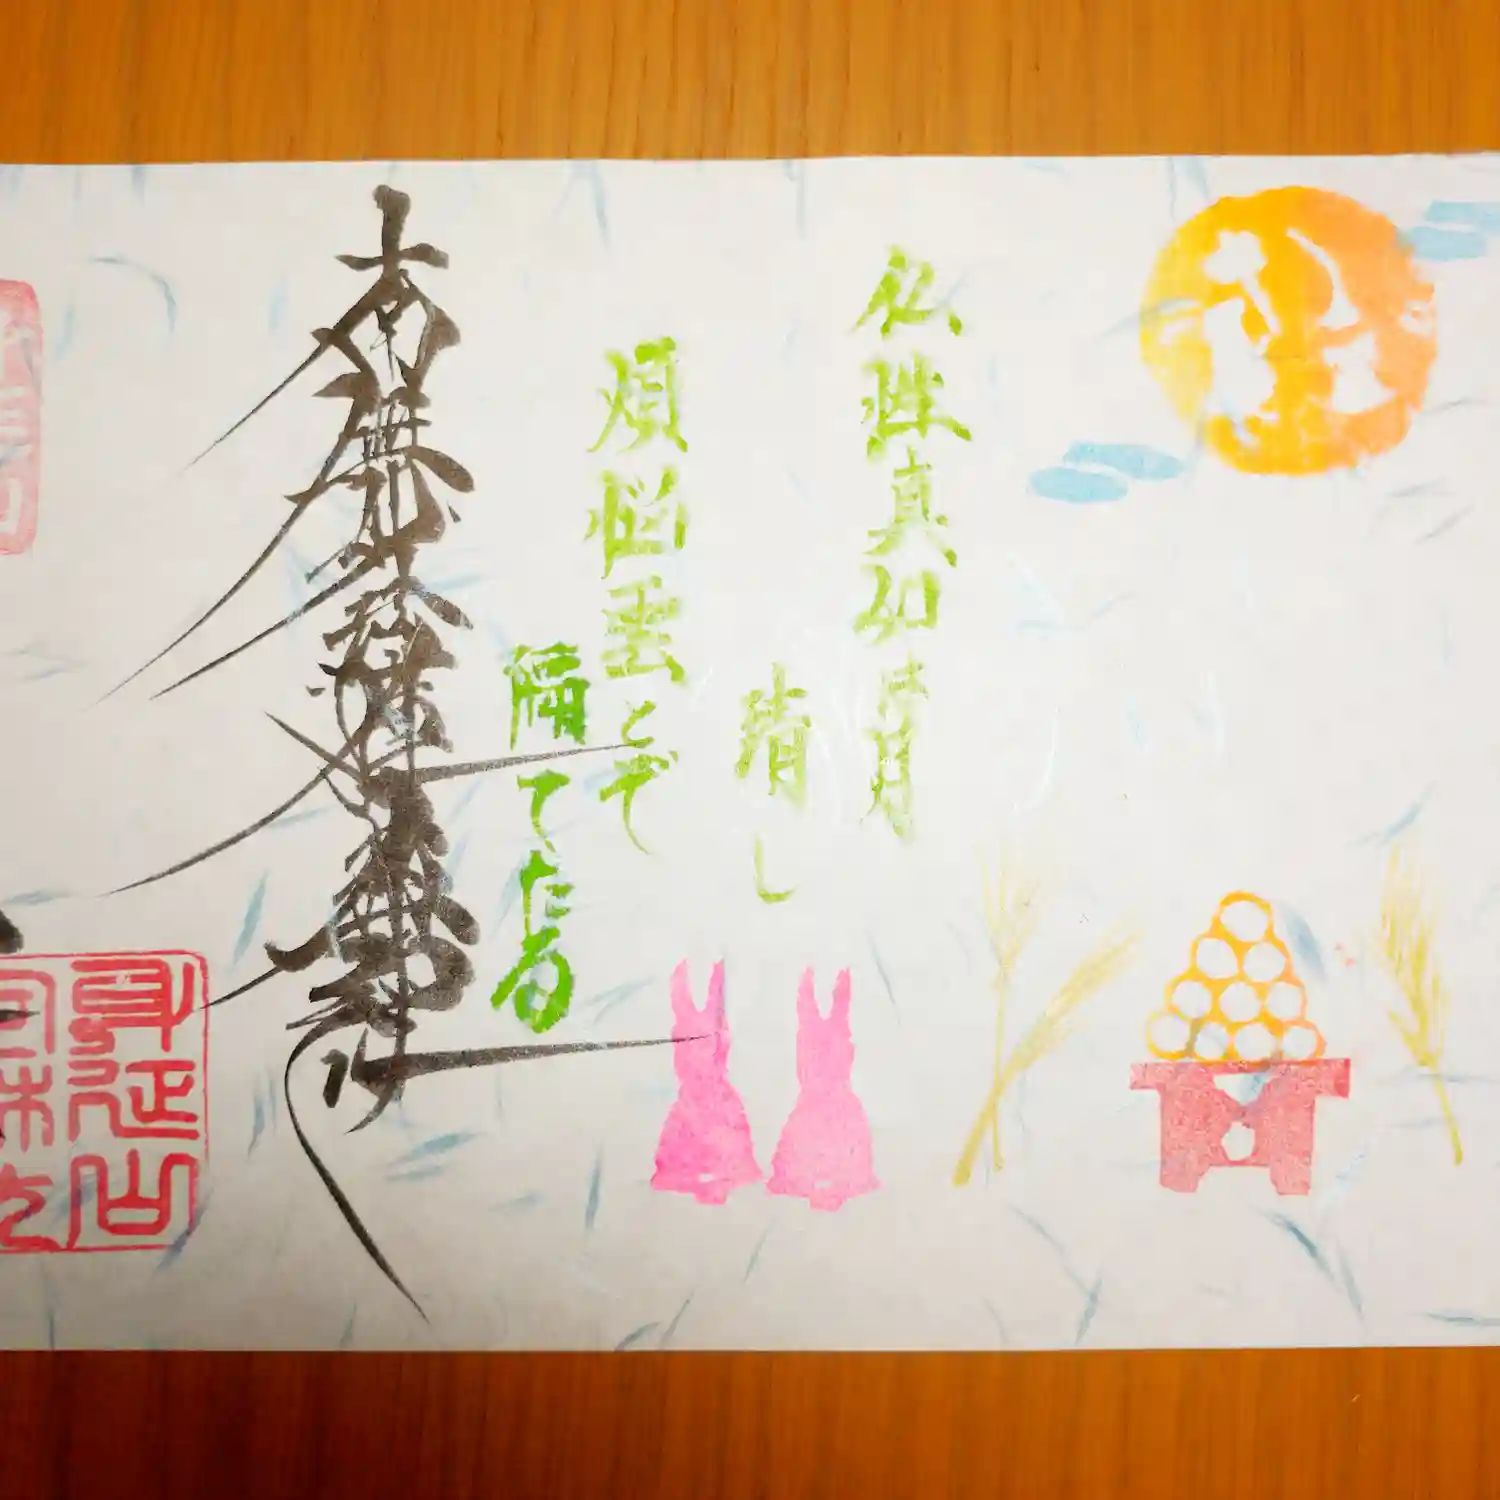 仏性真如は月
晴し
煩悩雲とぞ
隔てたる
南無妙法蓮華経
身延山